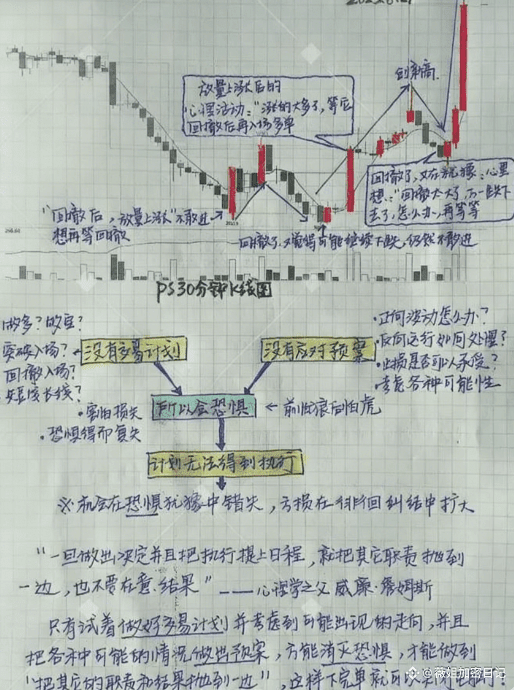 放量上涨后的
心理活动:"涨的太多了,等它
回撤后再入场多单
创新高
回撤了,又在犹豫:心里
想:"回撤太大了,万一跌下
去了,怎么办,再等等
"回撤后,放量上涨"不敢进
想再等回撤
回撤了,又觉得可能继续下跌,仍然不敢进
PS30分钟K线图
做多?做空?
突破入场?
回撤入场?
短线长线?
没有交易计划
没有应对预案
·任何波动怎么办?
·反向运行如何处理?
·止损是否可以承受?
·考虑各种可能性
·害怕损失
·恐惧得而复失
所以会恐惧
← 前怕狼后怕虎
计划无法得到执行
※ 机会在恐惧犹豫中错失,亏损在徘徊纠结中扩大
"一旦做出决定并且把执行提上日程,就把其它职责抛到
一边,也不要在意结果" ——心理学之父 威廉·詹姆斯
只有试着做好交易计划并考虑到可能出现的走向,并且
把各种可能的情况做出预案,方能消灭恐惧,才能做到
"把其它的职责和结果抛到一边",这样下完单就可以
薇姐加密日记